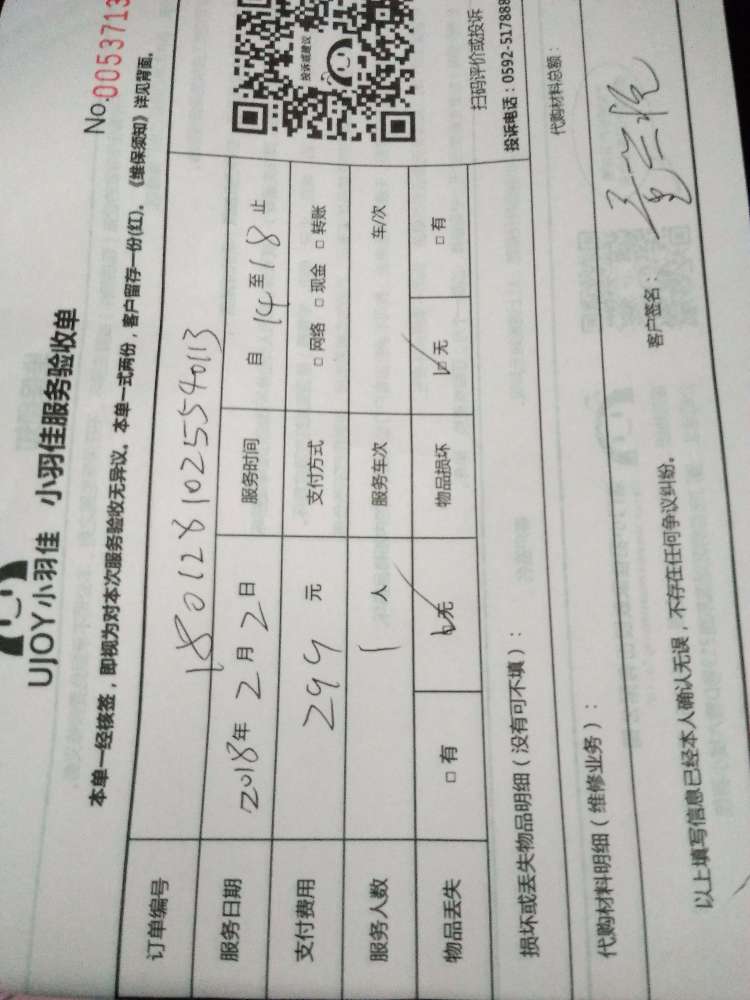 UJOY小羽佳 小羽佳服务验收单
No.0053713
本单一经核签，即视为对本次服务验收无异议。本单一式两份，客户留存一份(红)。《维保须知》详见背面。
订单编号 1801281025540113
服务日期 2018年2月2日 服务时间 自 14 至 18 止
支付费用 299 元 支付方式 □ 网络 □ 现金 □ 转账
服务人数 1 人 服务车次 车/次
物品丢失 □ 有 □ 无 物品损坏 □ 无 □ 有
投诉或建议
扫码评价或投诉
投诉电话：0592-517888
损坏或丢失物品明细（没有可不填）：
代购材料明细（维修业务）：
代购材料总额：
以上填写信息已经本人确认无误，不存在任何争议纠纷。
客户签名：